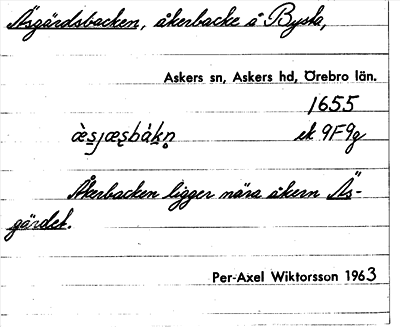 Äsgärdsbacken, åkerbacke å Bysta,
Askers sn, Askers hd, Örebro län.
1655
ek 9F9g
Åkerbacken ligger nära åkern Äs-
gärdet.
Per-Axel Wiktorsson 1963